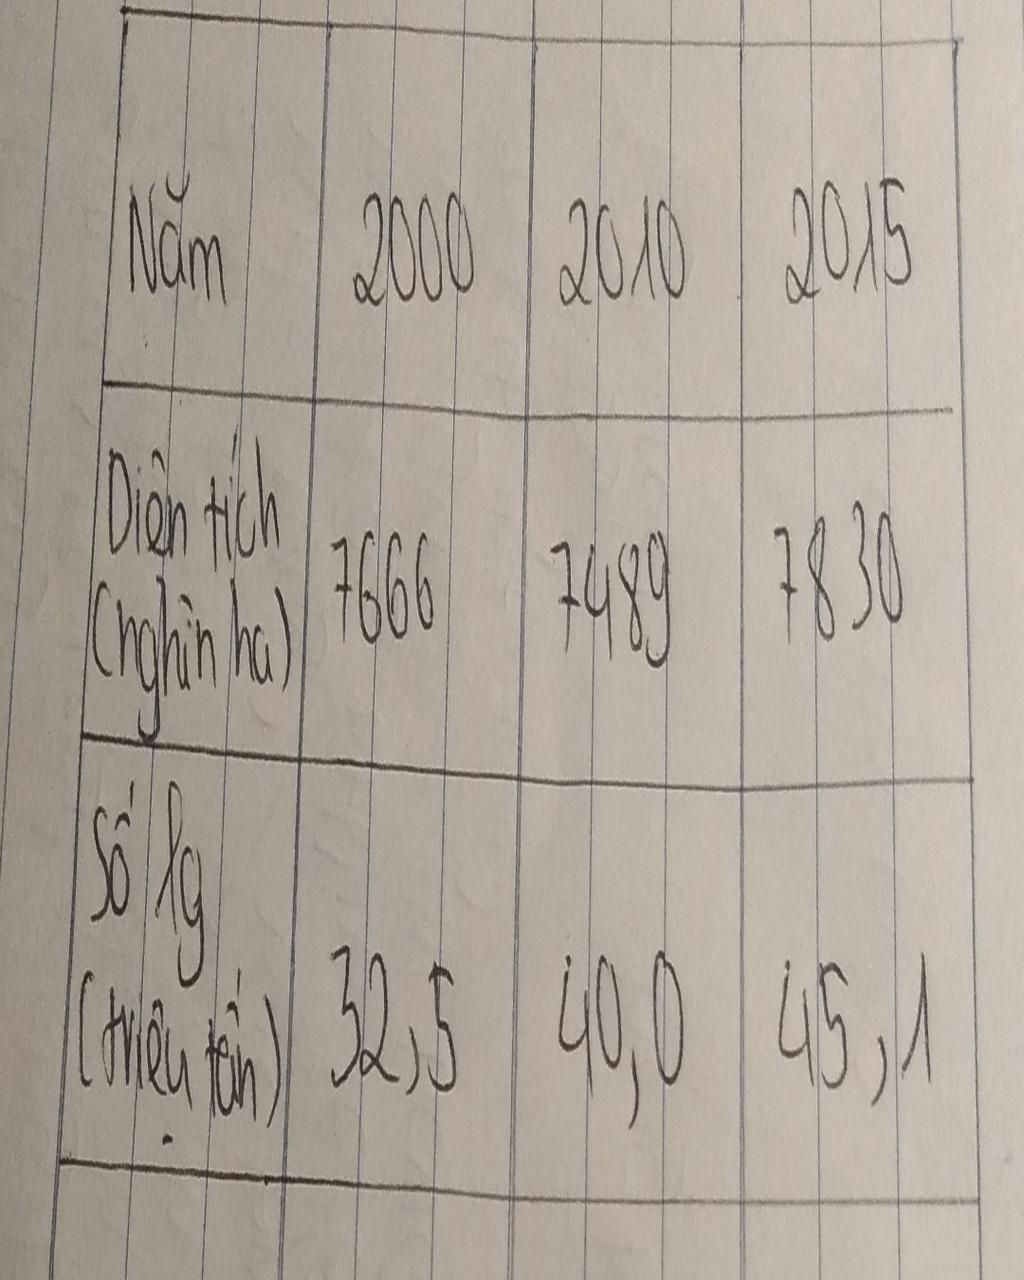 Năm 2000 2010 2015
Diện tích
(nghìn ha) 7666 7489 7830
Số lg
(triệu tấn) 32,5 40,0 45,1